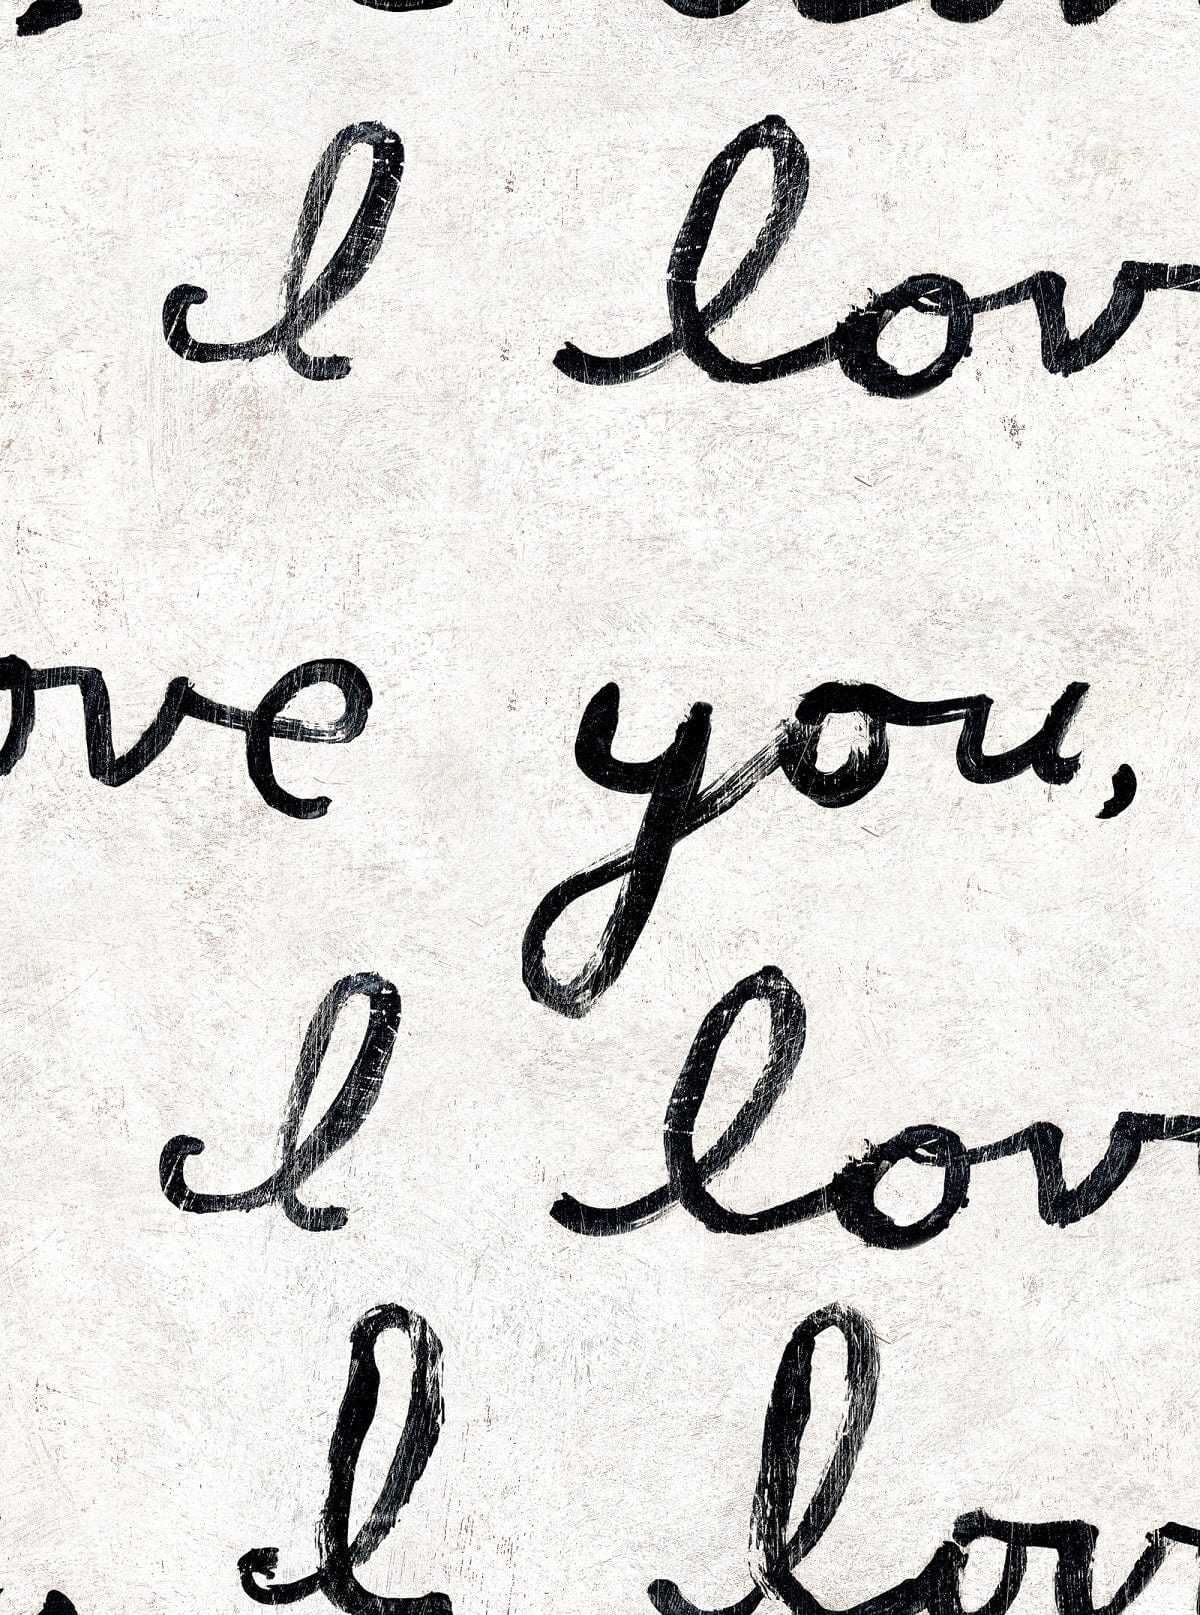 I lov
ove you,
I lov
I lov